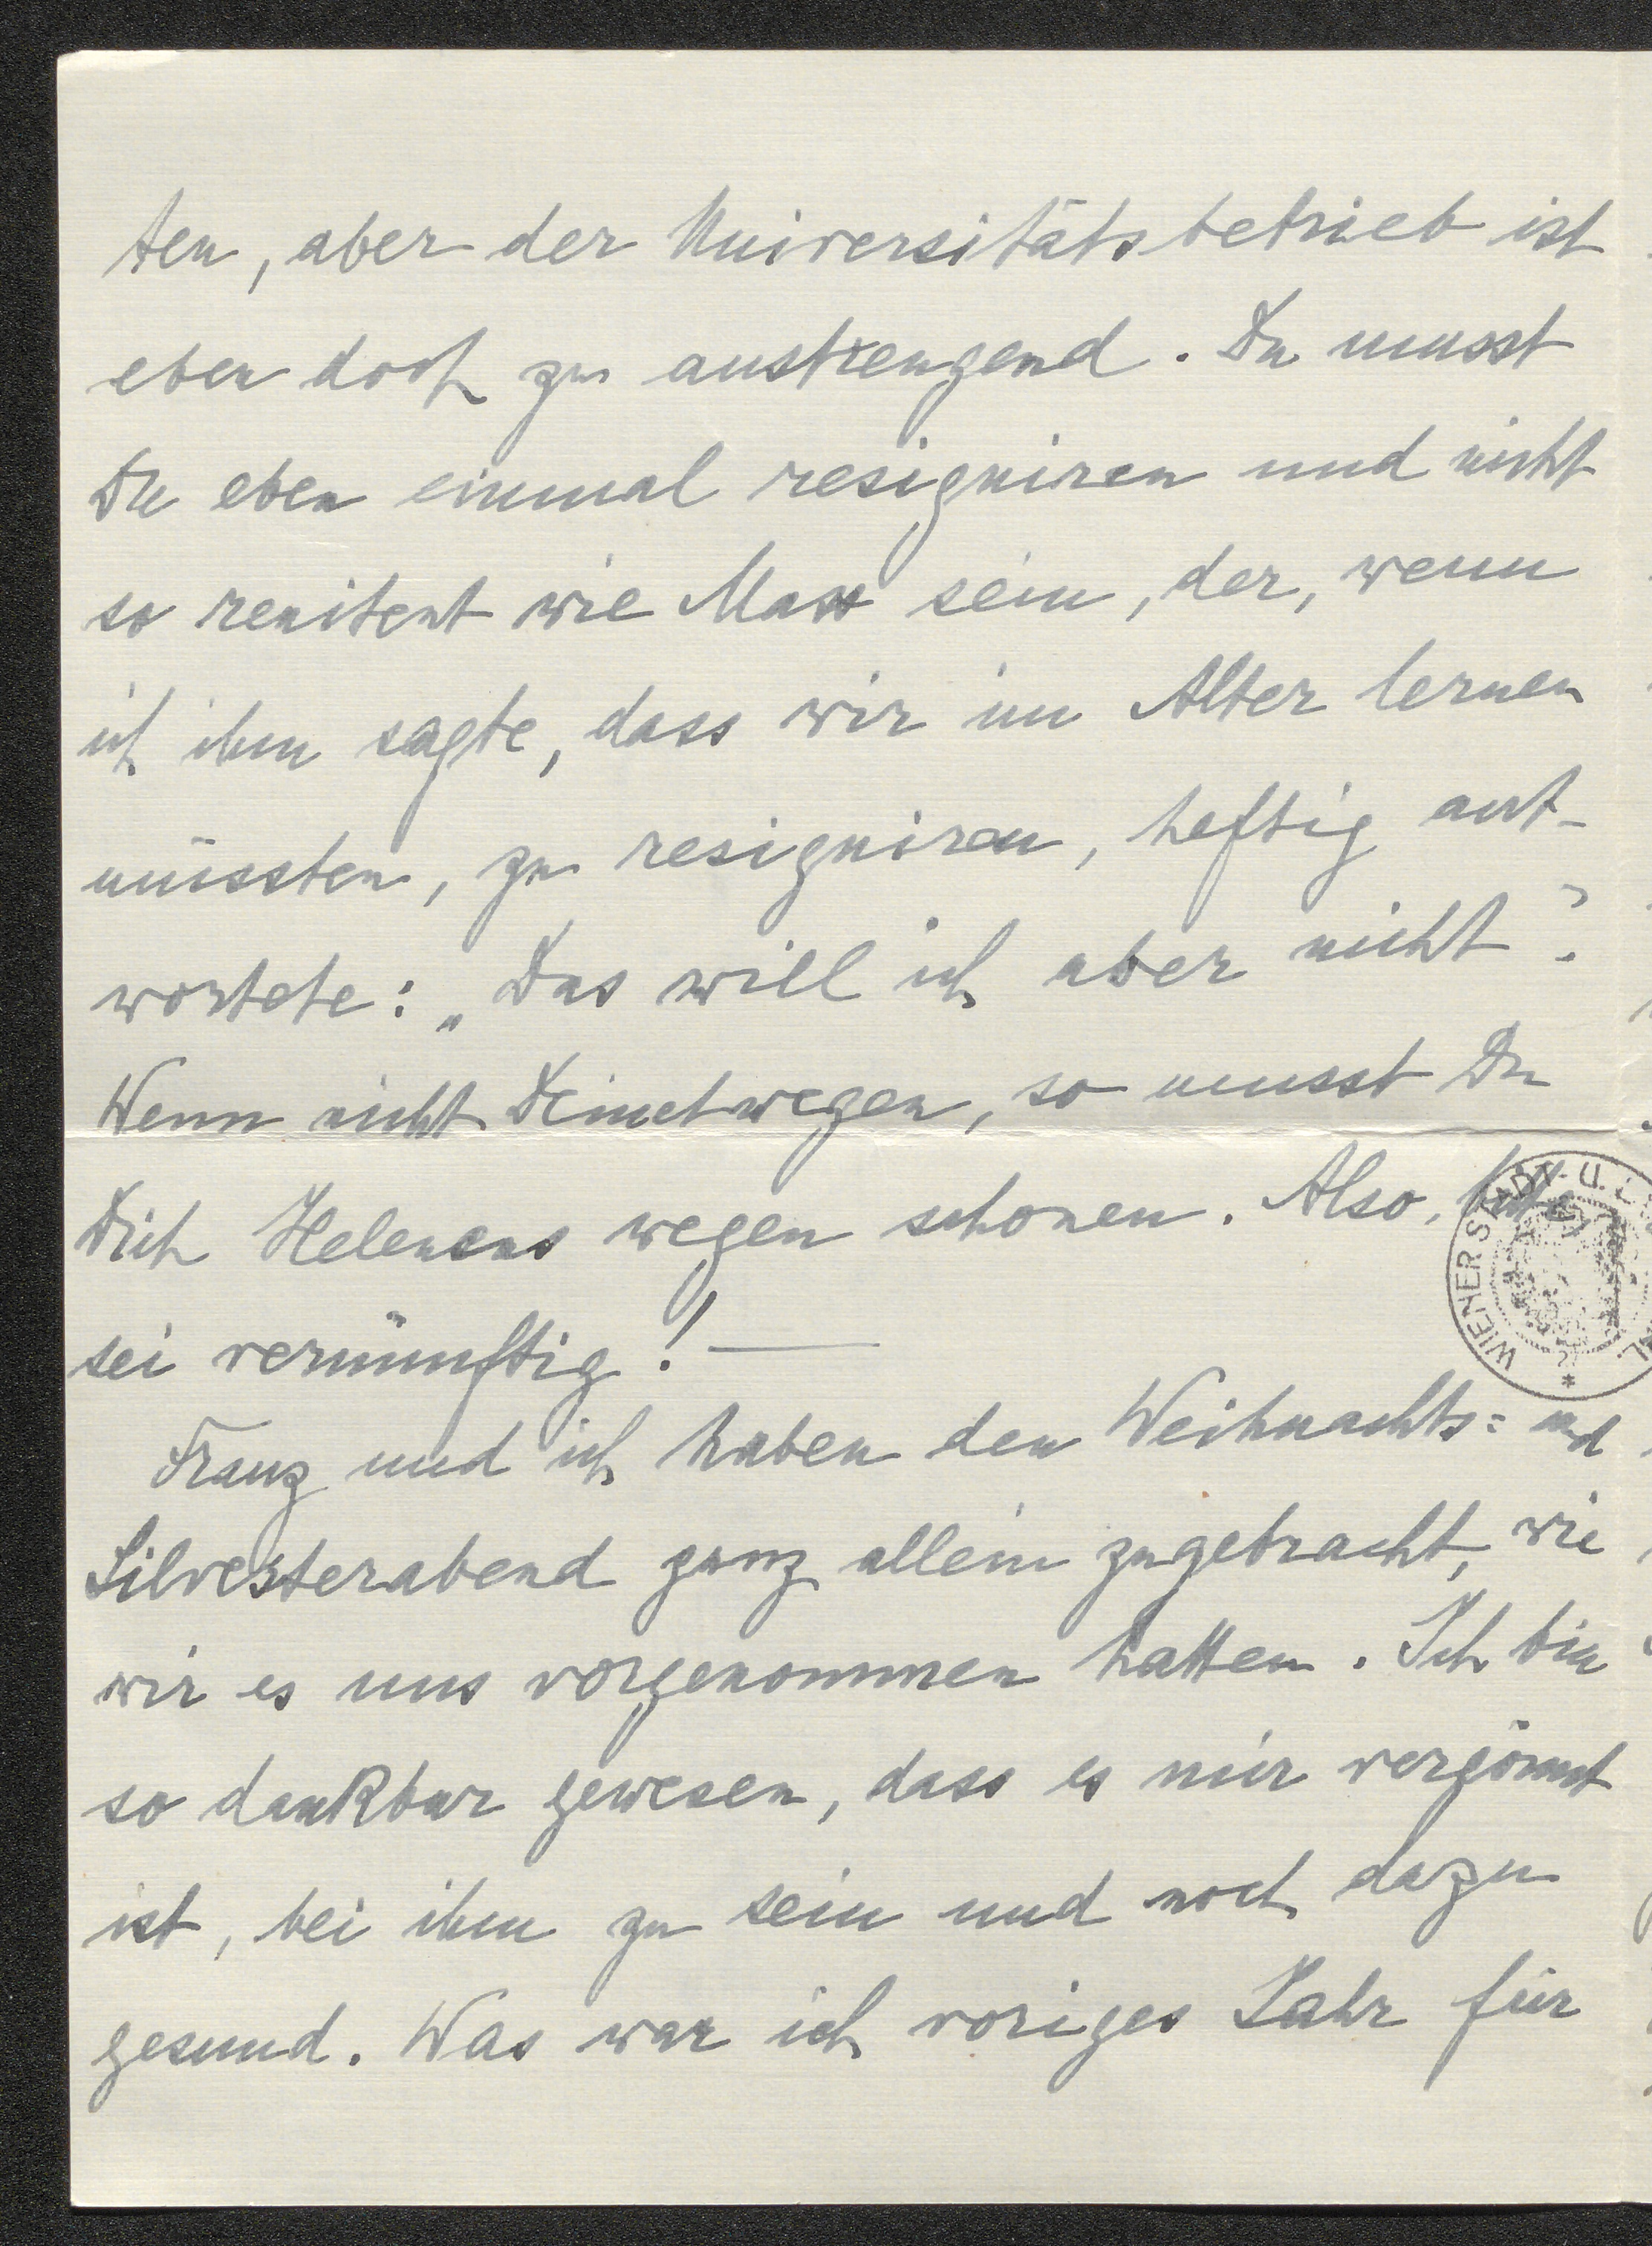 ten, aber der Universitätsbetrieb ist
eben doch zu anstrengend. Du musst
Du eben einmal resigniren und nicht
so renitent wie Max sein, der, wenn
ich ihm sagte, dass wir im Alter lernen
müssten, zu resigniren, heftig ant-
wortete: „Das will ich aber nicht".
Wenn nicht Deinetwegen, so musst Du
Dich Helenens wegen schonen. Also, bitte,
sei vernünftig! —
Franz und ich haben den Weihnachts= und
Silvesterabend ganz allein zugebracht, wie
wir es uns vorgenommen hatten. Ich bin
so dankbar gewesen, dass es mir vergönnt
ist, bei ihm zu sein und noch dazu
gesund. Was war ich voriges Jahr für
WIENER STADT- U. L